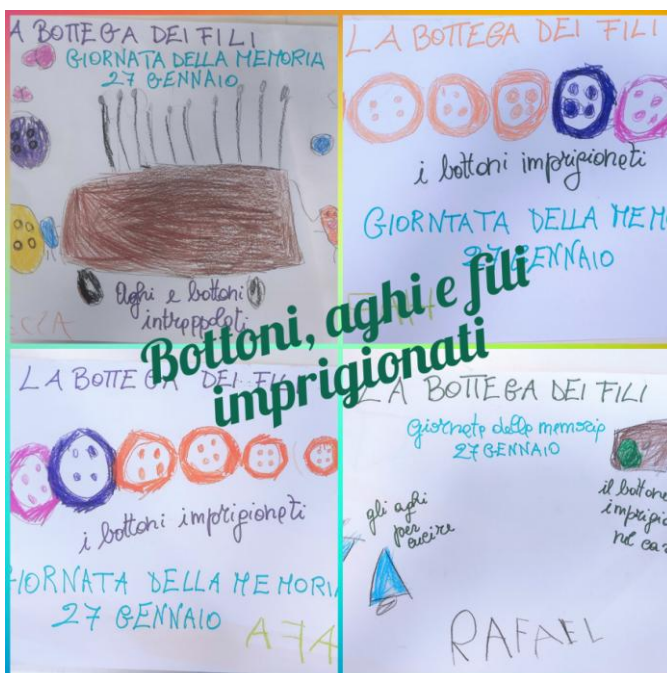 A BOTTEGA DEI FILI
GIORNATA DELLA MEMORIA
27 GENNAIO
Aghi e bottoni
intreppoleti
LA BOTTEGA DEI FILI
i bottoni imprigioneti
GIORNTATA DELLA MEM
27 GENNAIO
Bottoni, aghi e fili
imprigionati
LA BOTTEGA DEI FI
i bottoni imprigioneti
GIORNATA DELLA MEMORIA
27 GENNAIO
AFA
LA BOTTEGA DEI FILI
Giornate delle memorie
27 GENNAIO
gli aghi
per
cucire
il bottone
imprigio
nel ca
RAFAEL